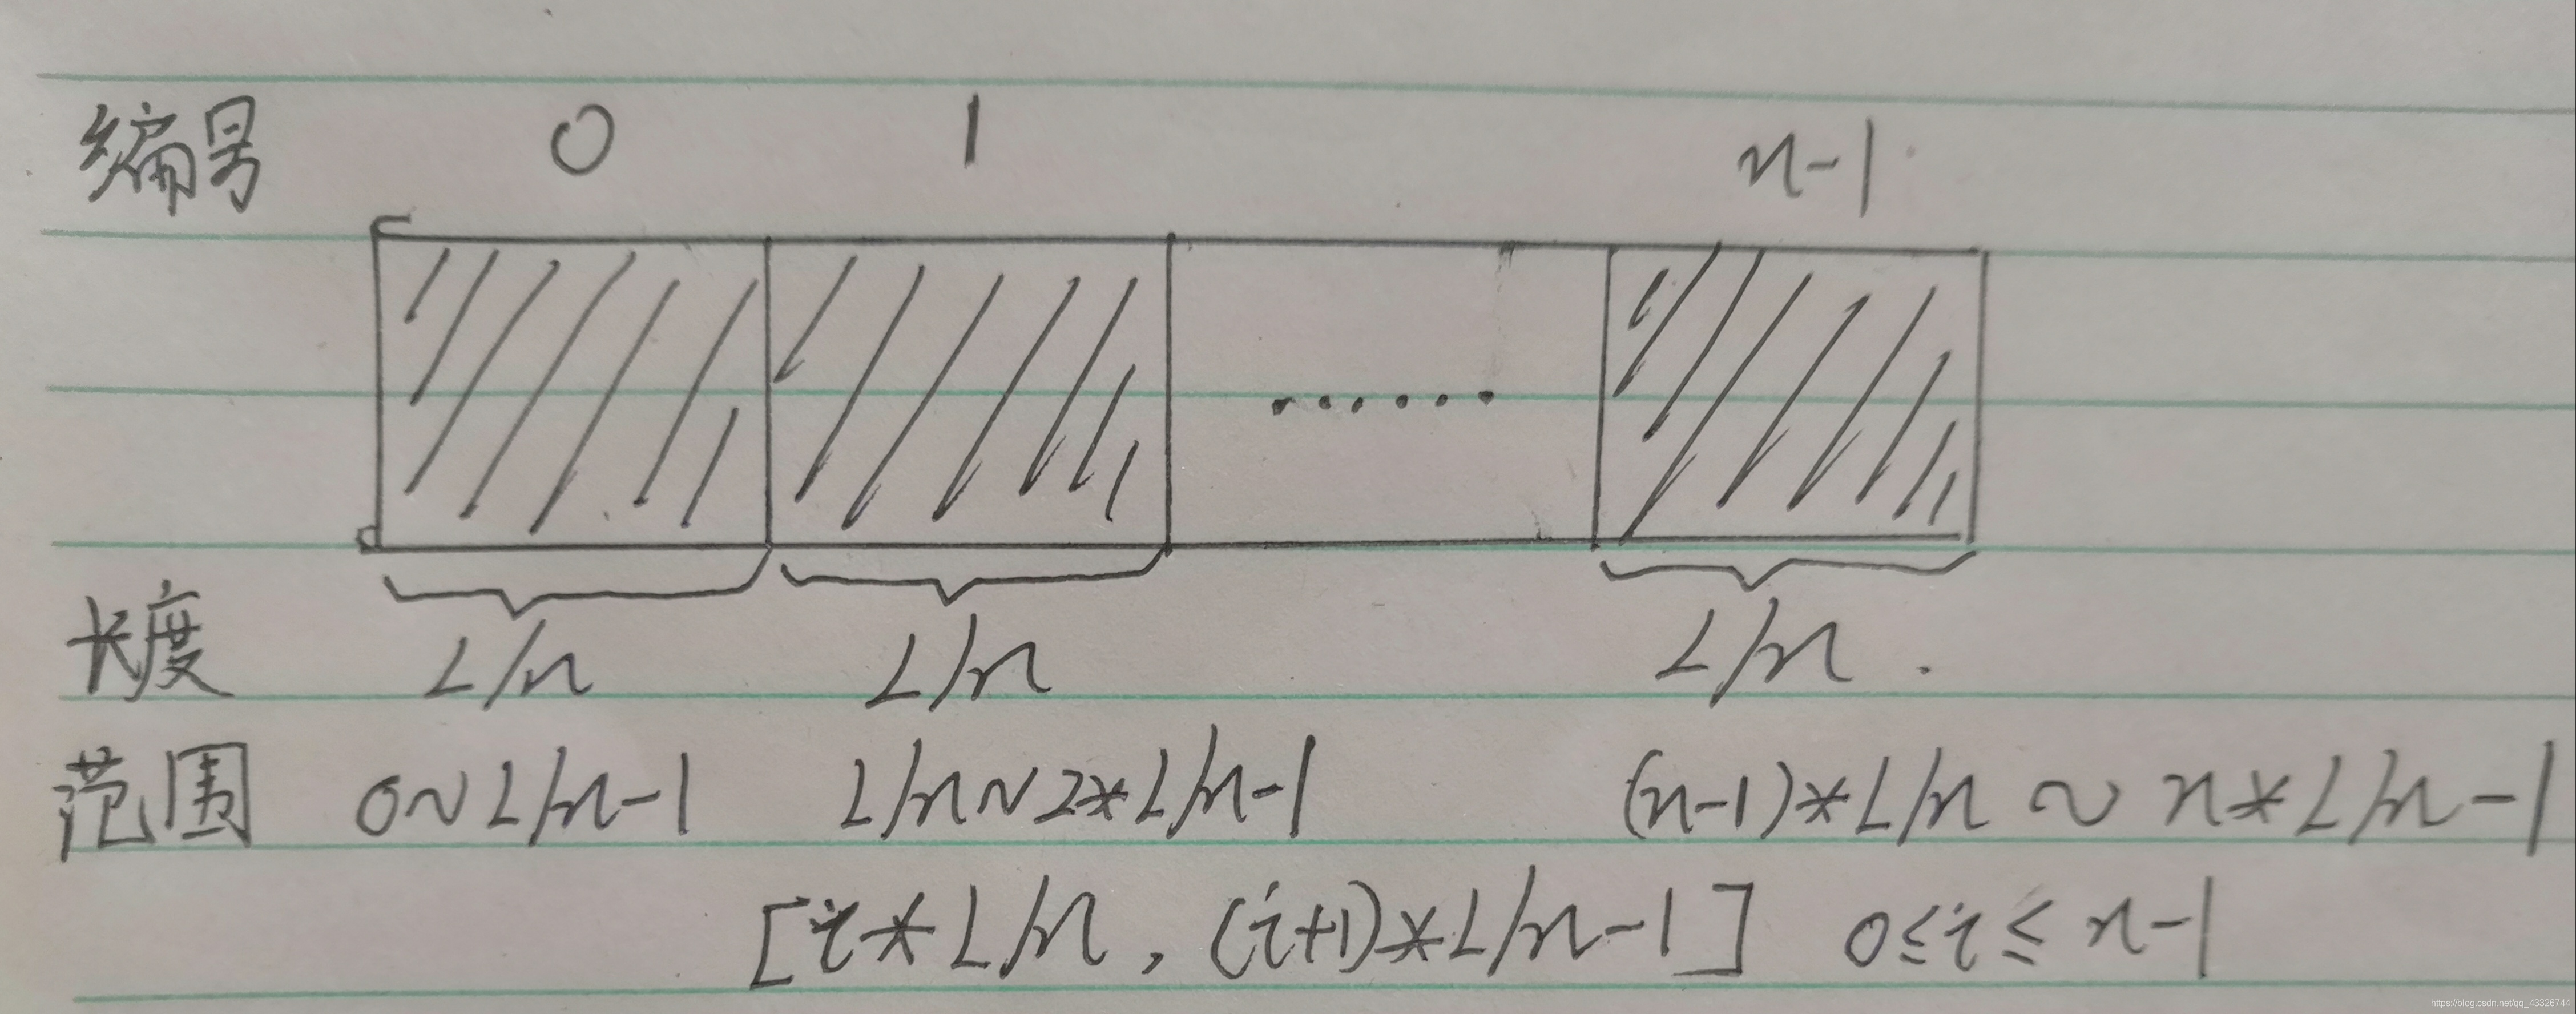 编号 0 1 n-1
......
长度 L/n L/n L/n .
范围 0~L/n-1 L/n~2*L/n-1 (n-1)*L/n ~ n*L/n-1
[i*L/n , (i+1)*L/n-1] 0≤i≤n-1
https://blog.csdn.net/qq_43326744